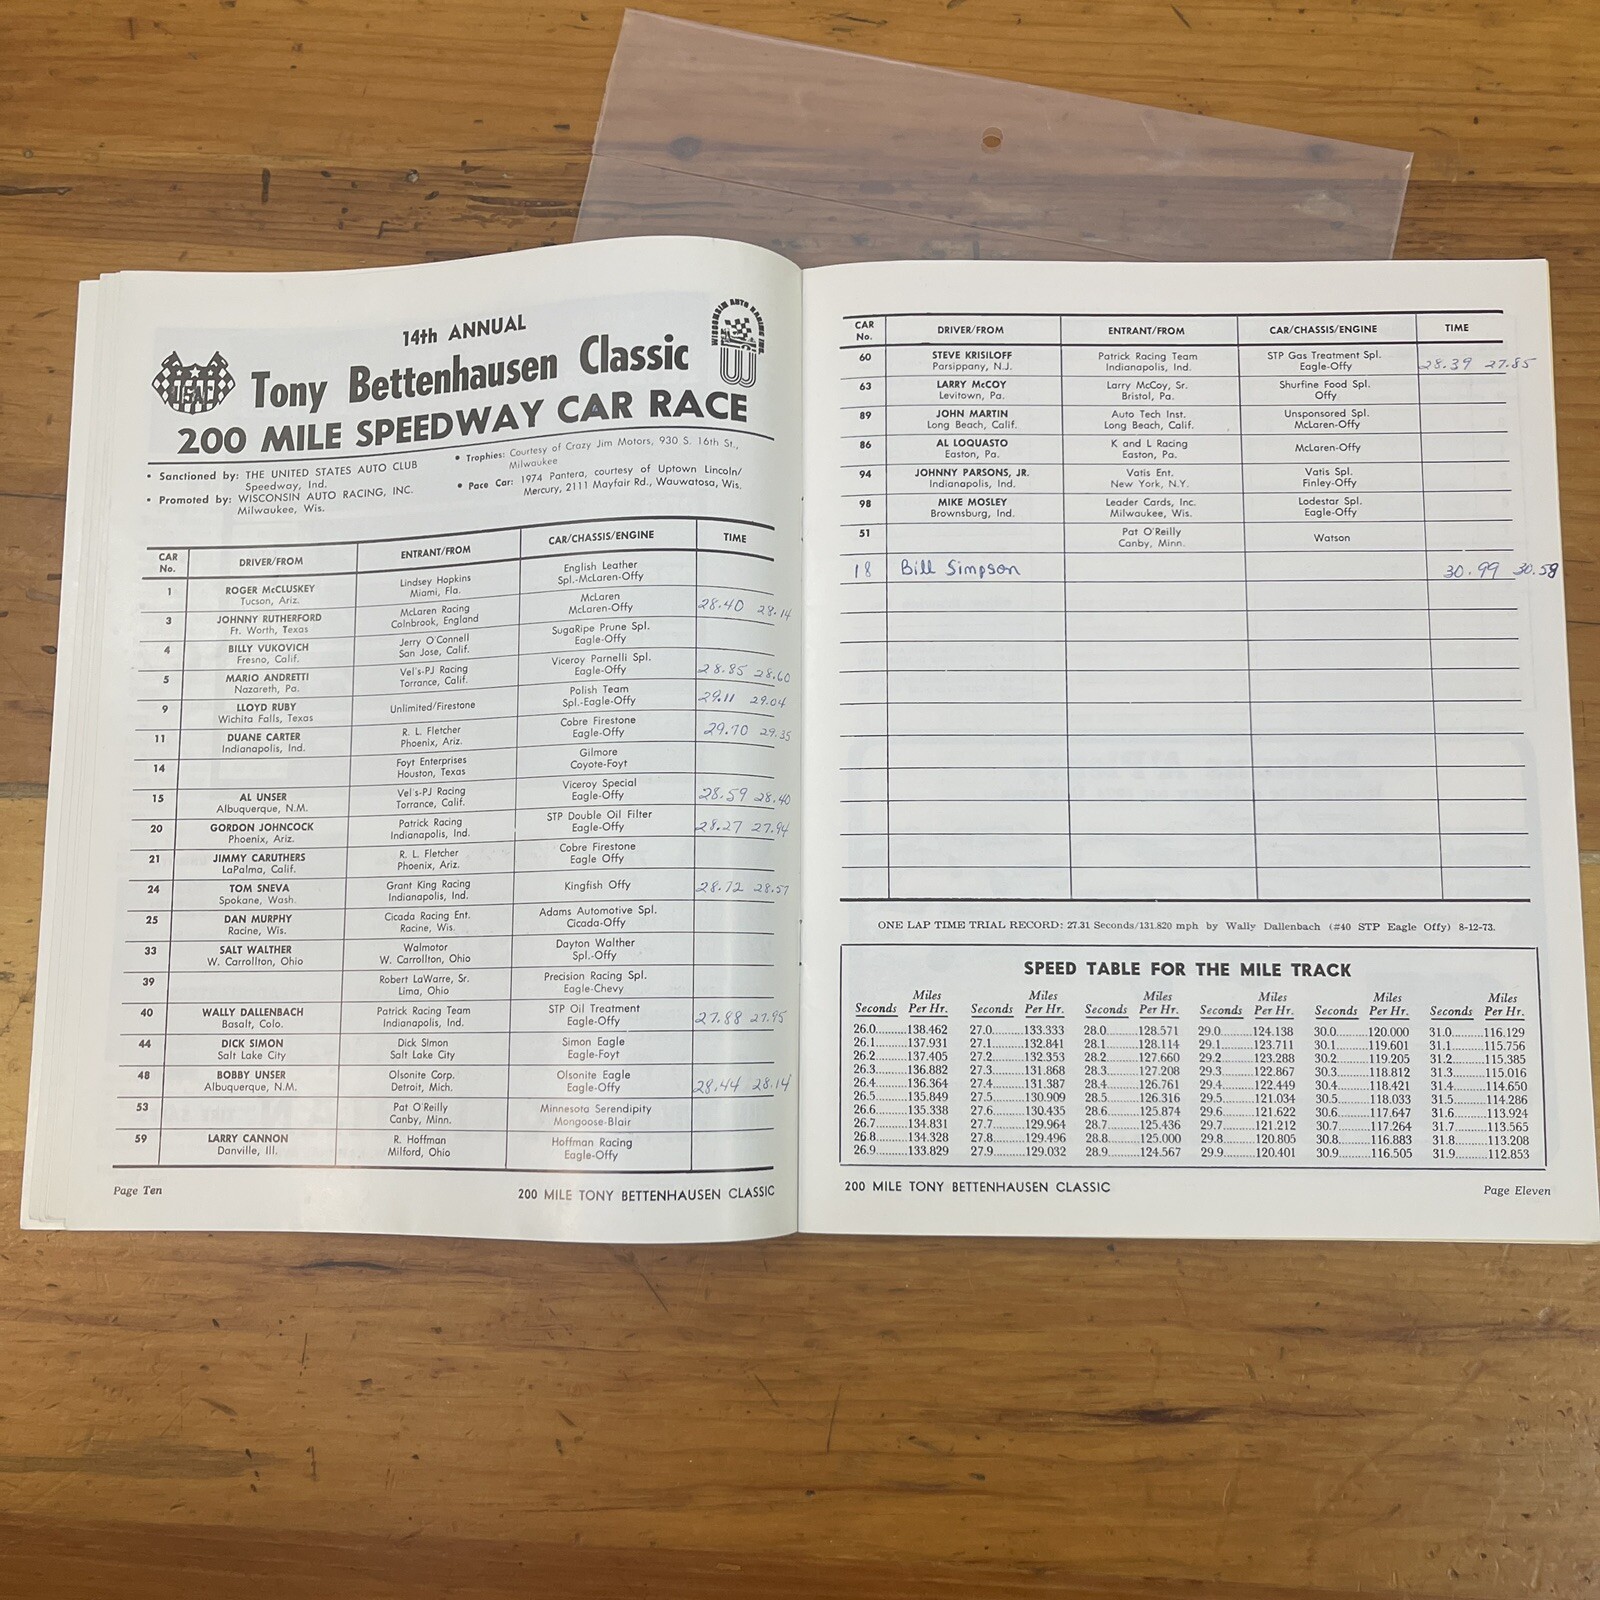 14th ANNUAL
Tony Bettenhausen Classic
200 MILE SPEEDWAY CAR RACE
USAC
WISCONSIN AUTO RACING INC.
• Sanctioned by: THE UNITED STATES AUTO CLUB
Speedway, Ind.
• Promoted by: WISCONSIN AUTO RACING, INC.
Milwaukee, Wis.
• Trophies: Courtesy of Crazy Jim Motors, 930 S. 16th St.,
Milwaukee
• Pace Car: 1974 Pantera, courtesy of Uptown Lincoln/
Mercury, 2111 Mayfair Rd., Wauwatosa, Wis.
CAR No. DRIVER/FROM ENTRANT/FROM CAR/CHASSIS/ENGINE TIME
1 ROGER McCLUSKEY Lindsey Hopkins English Leather
Tucson, Ariz. Miami, Fla. Spl.-McLaren-Offy
3 JOHNNY RUTHERFORD McLaren Racing McLaren 28.40 28.14
Ft. Worth, Texas Colnbrook, England McLaren-Offy
4 BILLY VUKOVICH Jerry O'Connell SugaRipe Prune Spl.
Fresno, Calif. San Jose, Calif. Eagle-Offy
5 MARIO ANDRETTI Vel's-PJ Racing Viceroy Parnelli Spl. 28.85 28.60
Nazareth, Pa. Torrance, Calif. Eagle-Offy
9 LLOYD RUBY Unlimited/Firestone Polish Team 29.11 29.04
Wichita Falls, Texas Spl.-Eagle-Offy
11 DUANE CARTER R. L. Fletcher Cobre Firestone 29.70 29.35
Indianapolis, Ind. Phoenix, Ariz. Eagle-Offy
14 Foyt Enterprises Gilmore
Houston, Texas Coyote-Foyt
15 AL UNSER Vel's-PJ Racing Viceroy Special 28.59 28.40
Albuquerque, N.M. Torrance, Calif. Eagle-Offy
20 GORDON JOHNCOCK Patrick Racing STP Double Oil Filter 28.27 27.94
Phoenix, Ariz. Indianapolis, Ind. Eagle-Offy
21 JIMMY CARUTHERS R. L. Fletcher Cobre Firestone
LaPalma, Calif. Phoenix, Ariz. Eagle Offy
24 TOM SNEVA Grant King Racing Kingfish Offy 28.72 28.57
Spokane, Wash. Indianapolis, Ind.
25 DAN MURPHY Cicada Racing Ent. Adams Automotive Spl.
Racine, Wis. Racine, Wis. Cicada-Offy
33 SALT WALTHER Walmotor Dayton Walther
W. Carrollton, Ohio W. Carrollton, Ohio Spl.-Offy
39 Robert LaWarre, Sr. Precision Racing Spl.
Lima, Ohio Eagle-Chevy
40 WALLY DALLENBACH Patrick Racing Team STP Oil Treatment 27.88 27.95
Basalt, Colo. Indianapolis, Ind. Eagle-Offy
44 DICK SIMON Dick Simon Simon Eagle
Salt Lake City Salt Lake City Eagle-Foyt
48 BOBBY UNSER Olsonite Corp. Olsonite Eagle 28.44 28.14
Albuquerque, N.M. Detroit, Mich. Eagle-Offy
53 Pat O'Reilly Minnesota Serendipity
Canby, Minn. Mongoose-Blair
59 LARRY CANNON R. Hoffman Hoffman Racing
Danville, Ill. Milford, Ohio Eagle-Offy
Page Ten 200 MILE TONY BETTENHAUSEN CLASSIC
CAR No. DRIVER/FROM ENTRANT/FROM CAR/CHASSIS/ENGINE TIME
60 STEVE KRISILOFF Patrick Racing Team STP Gas Treatment Spl. 28.39 27.85
Parsippany, N.J. Indianapolis, Ind. Eagle-Offy
63 LARRY McCOY Larry McCoy, Sr. Shurfine Food Spl.
Levitown, Pa. Bristol, Pa. Offy
89 JOHN MARTIN Auto Tech Inst. Unsponsored Spl.
Long Beach, Calif. Long Beach, Calif. McLaren-Offy
86 AL LOQUASTO K and L Racing McLaren-Offy
Easton, Pa. Easton, Pa.
94 JOHNNY PARSONS, JR. Vatis Ent. Vatis Spl.
Indianapolis, Ind. New York, N.Y. Finley-Offy
98 MIKE MOSLEY Leader Cards, Inc. Lodestar Spl.
Brownsburg, Ind. Milwaukee, Wis. Eagle-Offy
51 Pat O'Reilly Watson
Canby, Minn.
18 Bill Simpson 30.99 30.59
ONE LAP TIME TRIAL RECORD: 27.31 Seconds/131.820 mph by Wally Dallenbach (#40 STP Eagle Offy) 8-12-73.
SPEED TABLE FOR THE MILE TRACK
Seconds Miles Per Hr. Seconds Miles Per Hr. Seconds Miles Per Hr. Seconds Miles Per Hr. Seconds Miles Per Hr. Seconds Miles Per Hr.
26.0.........138.462 27.0.........133.333 28.0.........128.571 29.0.........124.138 30.0.........120.000 31.0.........116.129
26.1.........137.931 27.1.........132.841 28.1.........128.114 29.1.........123.711 30.1.........119.601 31.1.........115.756
26.2.........137.405 27.2.........132.353 28.2.........127.660 29.2.........123.288 30.2.........119.205 31.2.........115.385
26.3.........136.882 27.3.........131.868 28.3.........127.208 29.3.........122.867 30.3.........118.812 31.3.........115.016
26.4.........136.364 27.4.........131.387 28.4.........126.761 29.4.........122.449 30.4.........118.421 31.4.........114.650
26.5.........135.849 27.5.........130.909 28.5.........126.316 29.5.........121.034 30.5.........118.033 31.5.........114.286
26.6.........135.338 27.6.........130.435 28.6.........125.874 29.6.........121.622 30.6.........117.647 31.6.........113.924
26.7.........134.831 27.7.........129.964 28.7.........125.436 29.7.........121.212 30.7.........117.264 31.7.........113.565
26.8.........134.328 27.8.........129.496 28.8.........125.000 29.8.........120.805 30.8.........116.883 31.8.........113.208
26.9.........133.829 27.9.........129.032 28.9.........124.567 29.9.........120.401 30.9.........116.505 31.9.........112.853
200 MILE TONY BETTENHAUSEN CLASSIC Page Eleven